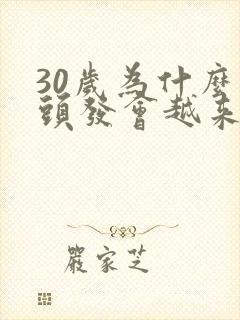 30歲為什麼
頭發會越来
嚴家芝